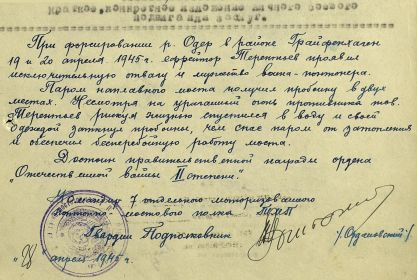 Краткое, конкретное изложение личного боевого
подвига или заслуг.
При форсировании р. Одер в районе Грайфенхаген
19 и 20 апреля 1945 г. ефрейтор Терентьев проявил
исключительную отвагу и мужество воина-понтонера.
Паром наплавного моста получил пробоину в двух
местах. Несмотря на ураганный огонь противника тов.
Терентьев рискуя жизнью спустился в воду и своей
одеждой заткнул пробоины, чем спас паром от затопления
и обеспечил бесперебойную работу моста.
Достоин правительственной награды ордена
"Отечественной войны II степени".
Командир 7 отдельного моторизованного
понтонно-мостового полка
Гвардии Подполковник
"28" апреля 1945 г.